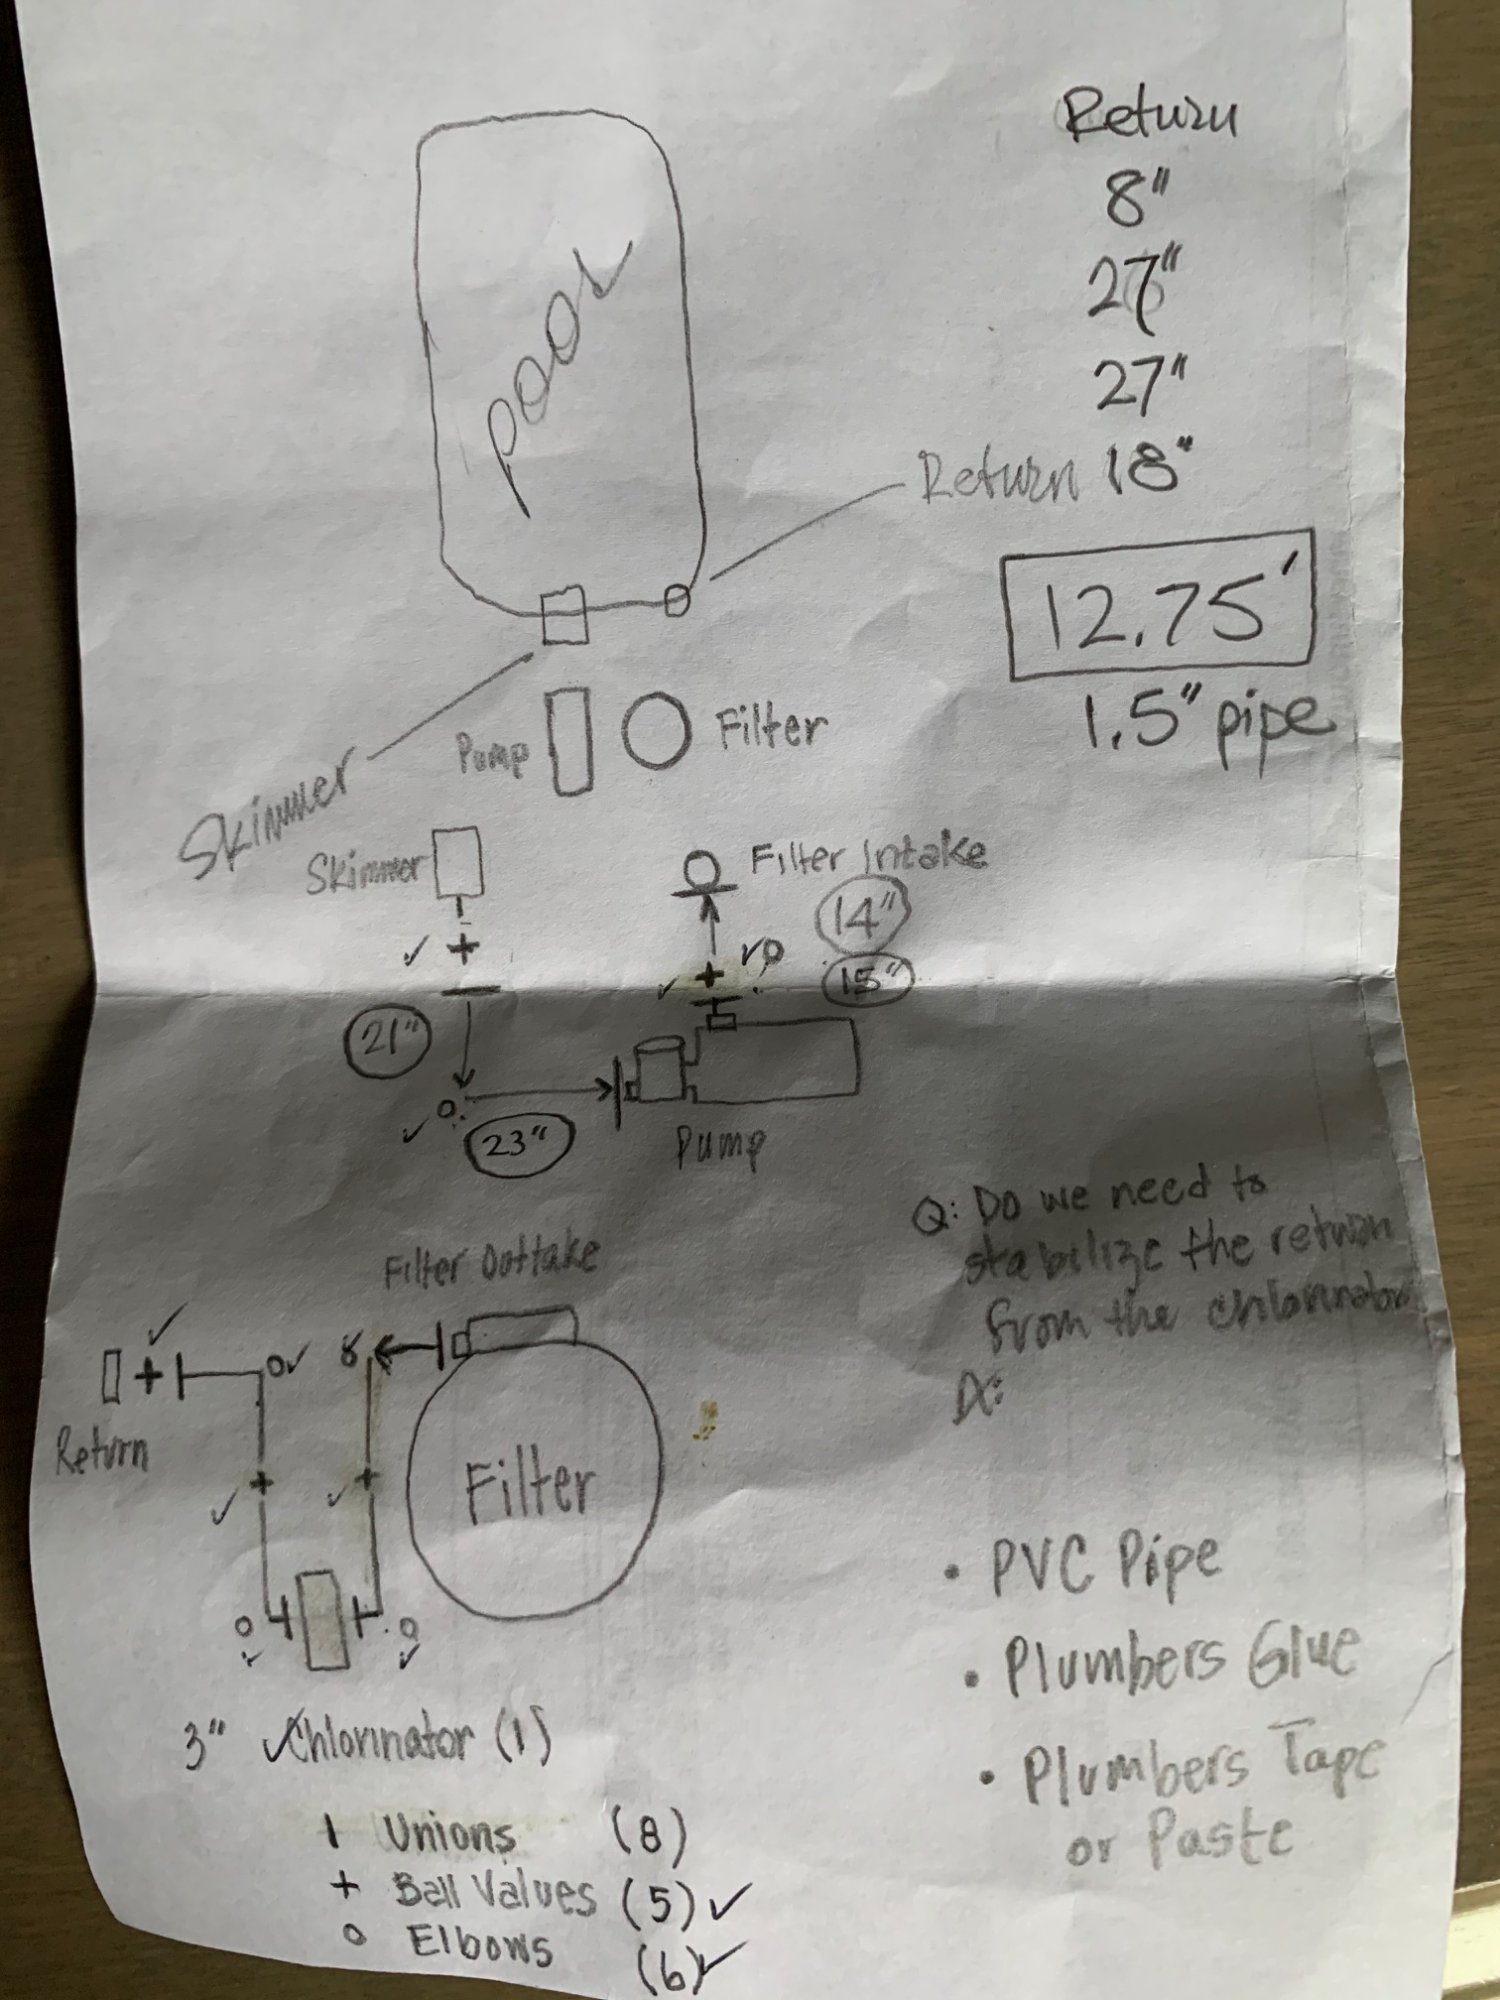 Return
8"
27"
27"
Return 18"
12.75'
1.5" pipe
pool
Pump
Filter
Skimmer
Skimmer
Filter Intake
14"
15"
21"
23"
Pump
Q: Do we need to
stabilize the return
from the chlorinator
A:
Filter Outtake
Return
Filter
• PVC Pipe
• Plumbers Glue
• Plumbers Tape
or Paste
3" ✓Chlorinator (1)
I Unions (8)
+ Ball Values (5) ✓
o Elbows (6) ✓